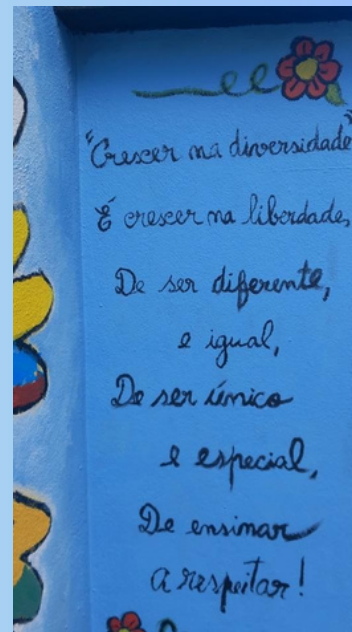 "Crescer na diversidade"
É crescer na liberdade,
De ser diferente,
e igual,
De ser único
e especial,
De ensinar
a respeitar!